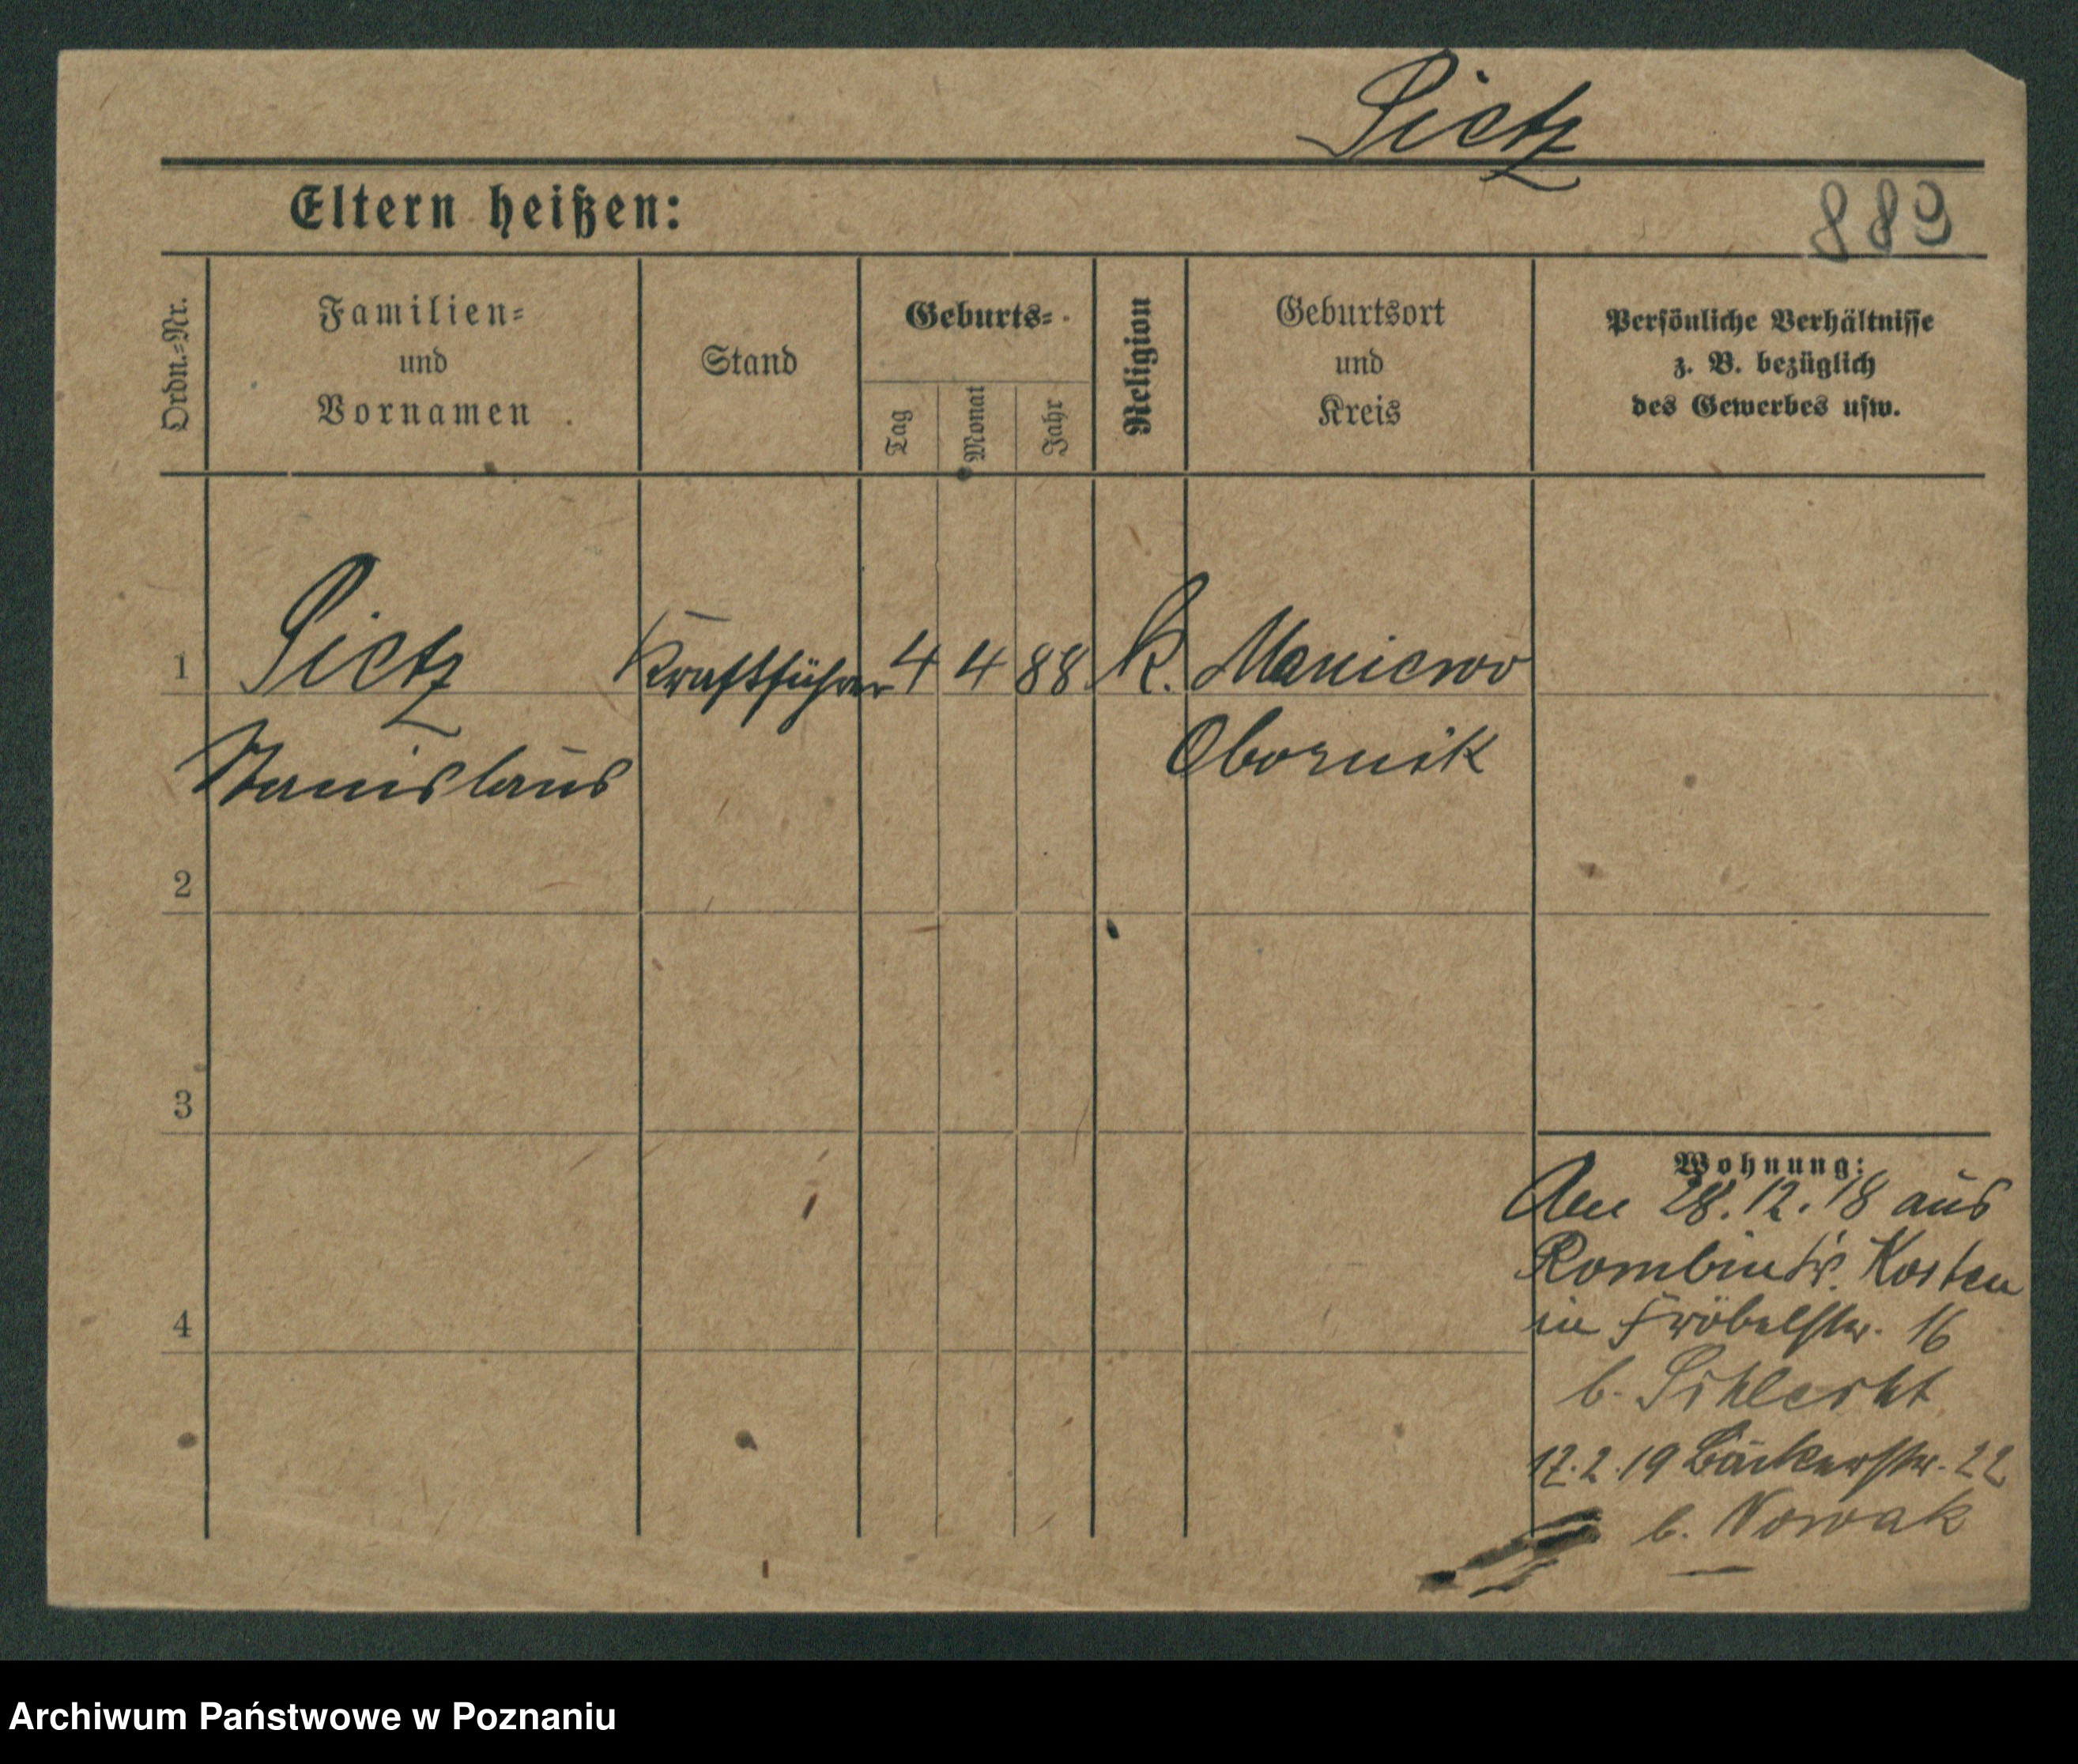 Sietz
Eltern heißen:
889
Ordn.=Nr.
Familien=
und
Vornamen
Stand
Geburts=
Tag
Monat
Jahr
Religion
Geburtsort
und
Kreis
Persönliche Verhältnisse
z. B. bezüglich
des Gewerbes usw.
1
Sietz
Kraftführer
4
4
88
k.
Maniewo
Stanislaus
Obornik
2
3
4
Wohnung:
28.12.18 aus
Kosten
in Fröbelstr. 16
b. Schlecht
17.2.19 Bäckerstr. 22
b. Nowak
Archiwum Państwowe w Poznaniu